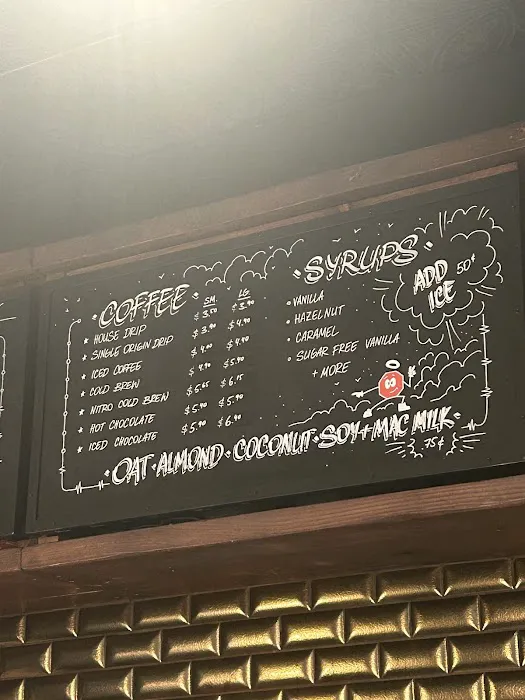 COFFEE
SM. LG.
HOUSE DRIP $3.50 $3.90
SINGLE ORIGIN DRIP $3.90 $4.90
ICED COFFEE $4.90 $4.90
COLD BREW $4.90 $5.90
NITRO COLD BREW $5.65 $6.15
HOT CHOCOLATE $5.90 $5.90
ICED CHOCOLATE $5.90 $6.90
SYRUPS
VANILLA
HAZELNUT
CARAMEL
SUGAR FREE VANILLA
+ MORE
ADD 50¢
ICE
OAT • ALMOND • COCONUT • SOY + MAC MILK
75¢